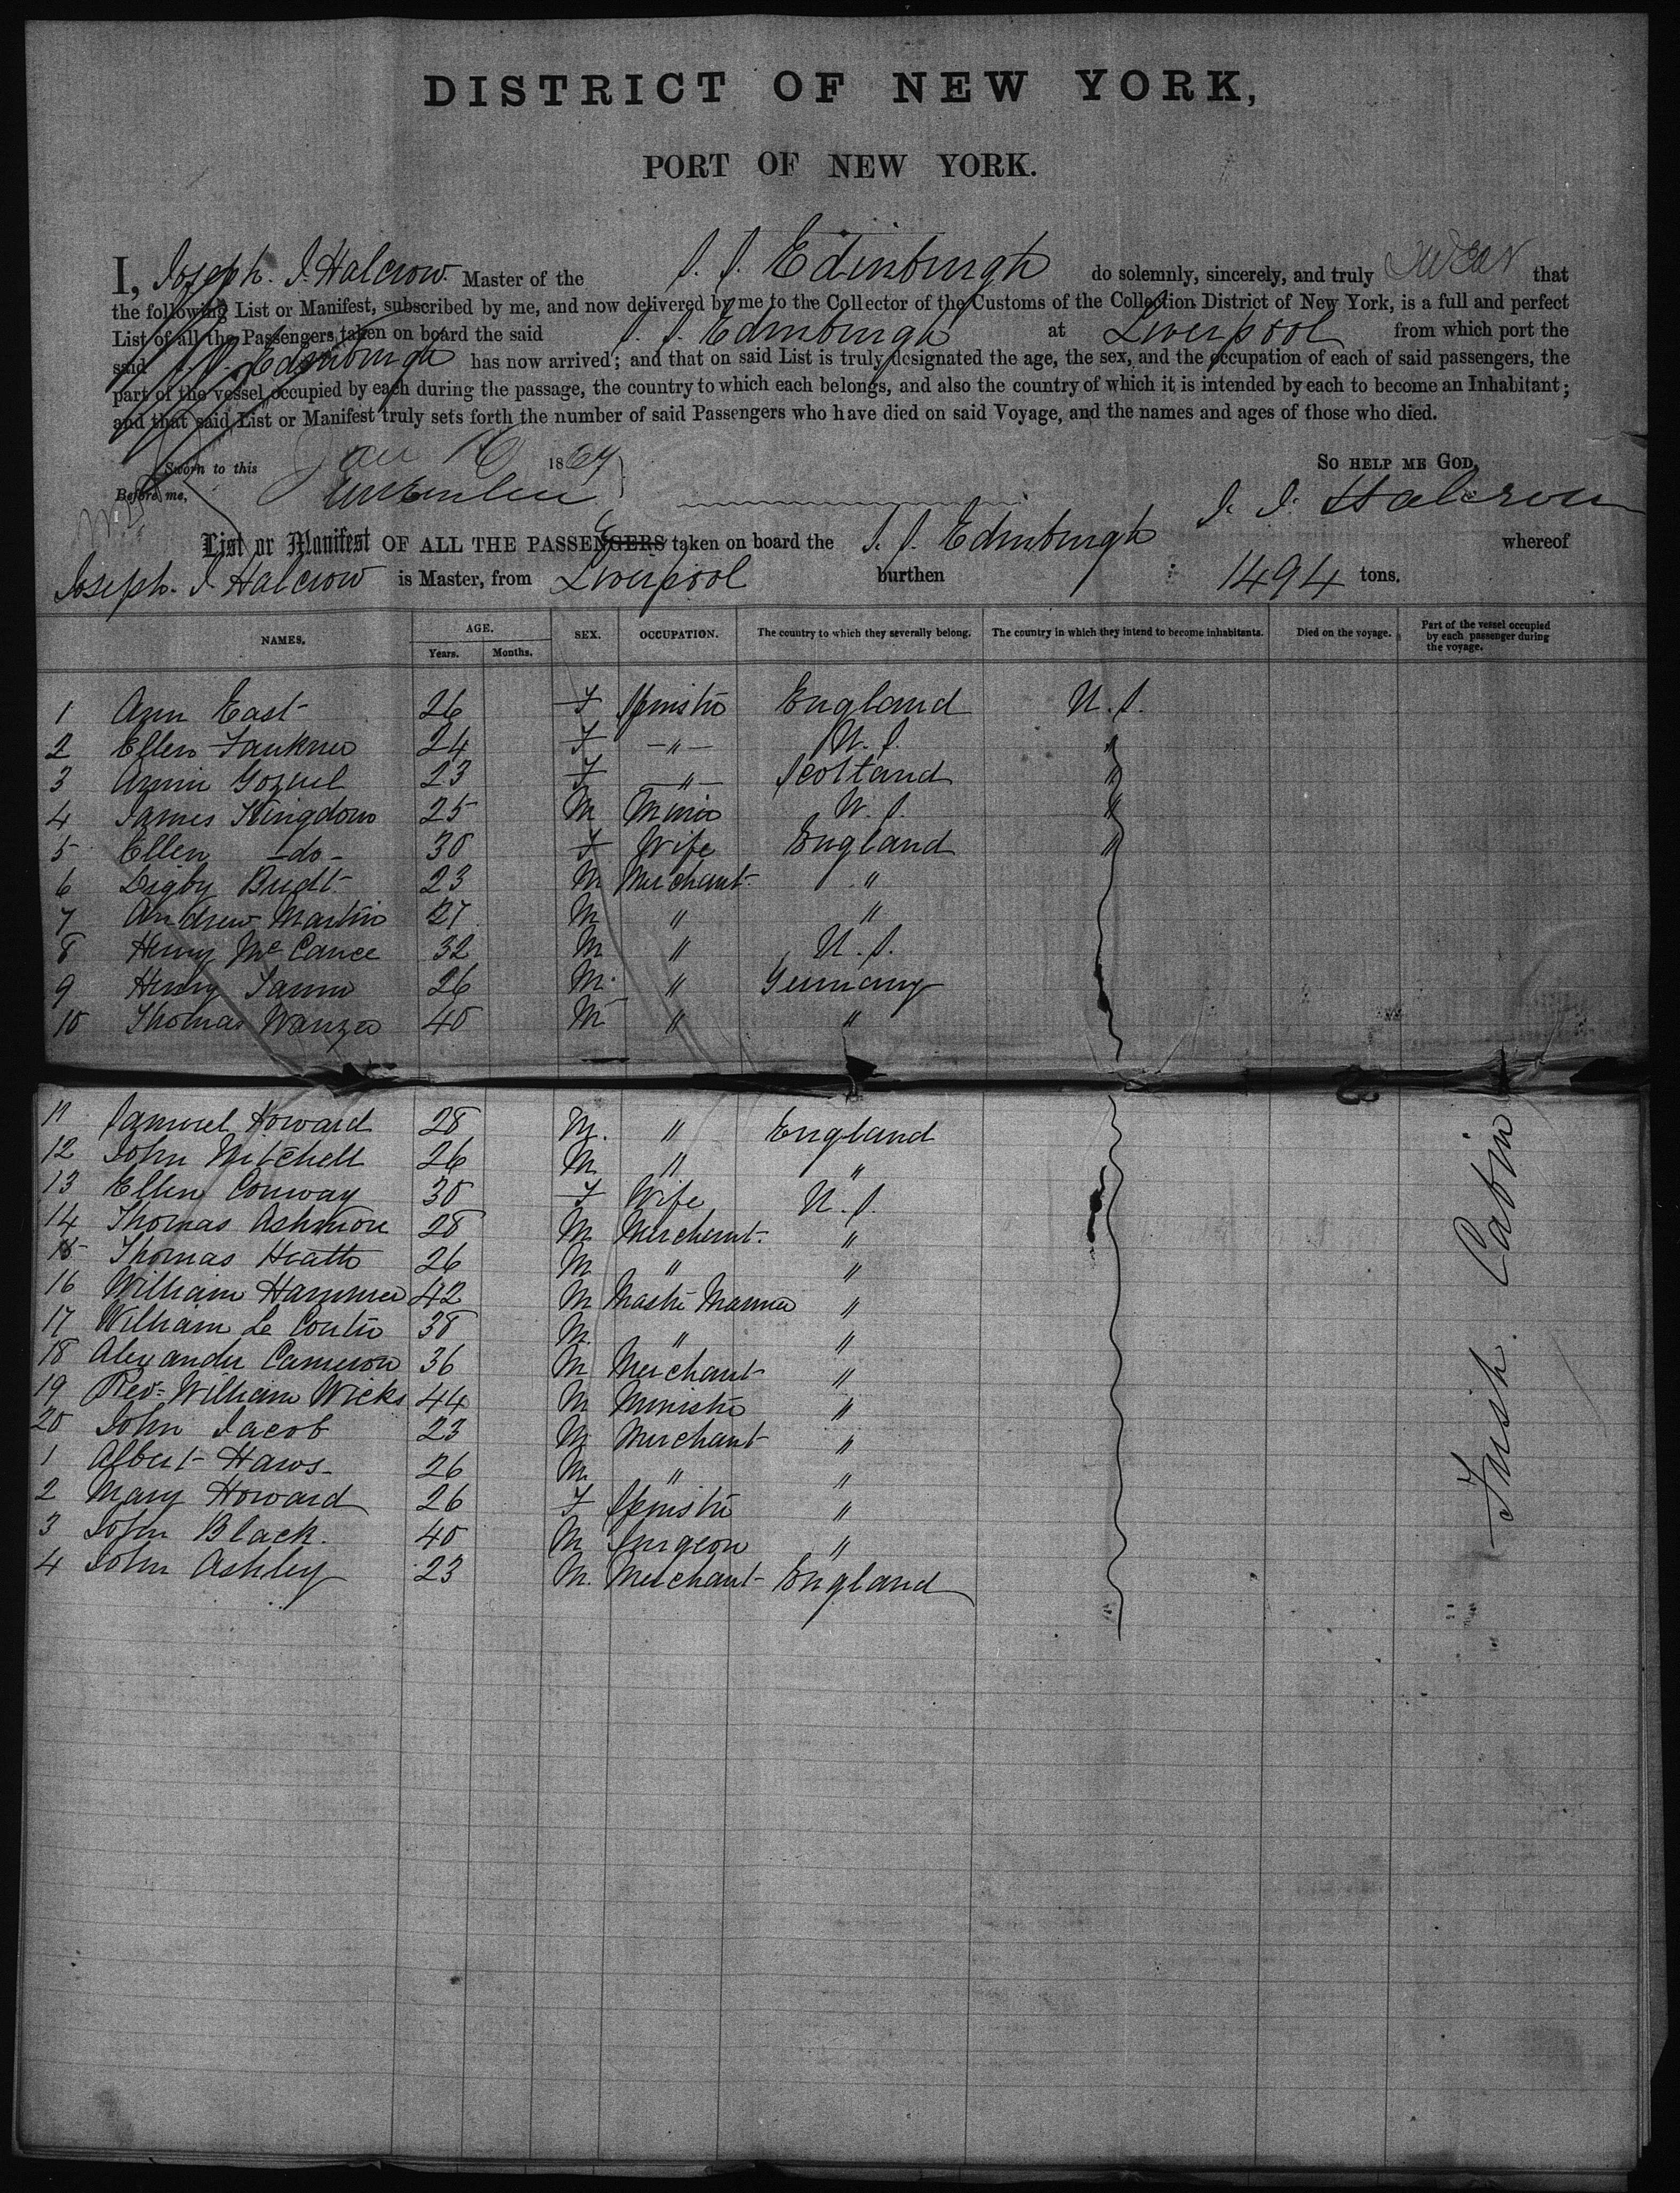 DISTRICT OF NEW YORK,
PORT OF NEW YORK.
I, Joseph. J. Halcrow. Master of the S. S. Edinburgh do solemnly, sincerely, and truly swear that
the following List or Manifest, subscribed by me, and now delivered by me to the Collector of the Customs of the Collection District of New York, is a full and perfect
List of all the Passengers taken on board the said S. S. Edinburgh at Liverpool from which port the
said S. S. Edinburgh has now arrived; and that on said List is truly designated the age, the sex, and the occupation of each of said passengers, the
part of the vessel occupied by each during the passage, the country to which each belongs, and also the country of which it is intended by each to become an Inhabitant;
and that said List or Manifest truly sets forth the number of said Passengers who have died on said Voyage, and the names and ages of those who died.
Sworn to this Jan 16 1867
So help me God,
Before me,
J. J. Halcrow
List or Manifest OF ALL THE PASSENGERS taken on board the S. S. Edinburgh whereof
Joseph. J Halcrow is Master, from Liverpool burthen 1494 tons.
NAMES. AGE. Years. Months. SEX. OCCUPATION. The country to which they severally belong. The country in which they intend to become inhabitants. Died on the voyage. Part of the vessel occupied by each passenger during the voyage.
1 Ann East 26 F Spinster England U. S.
2 Ellen Faukner 24 F -"- U. S. "
3 Annie 23 F -"- Scotland "
4 James Kingdom 25 M Miner U. S. "
5 Ellen -do- 30 F Wife England "
6 Digby 23 M Merchant "
7 Andrew Martin 27 M " "
8 Henry McCance 32 M " U. S.
9 Henry 26 M. " Germany
10 Thomas Wanzer 40 M " "
11 Samuel Howard 28 M. " England
12 John Mitchell 26 M " "
13 Ellen Conway 30 F Wife U. S.
14 Thomas Ashmore 28 M Merchant. "
15 Thomas Heath 26 M " "
16 William Hammer 42 M Master Mariner "
17 William Le 38 M. " "
18 Alexander Cameron 36 M Merchant "
19 Rev. William Wicks 44 M Minister "
20 John Jacob 23 M Merchant "
1 Albert Haws 26 M. " "
2 Mary Howard 26 F Spinster "
3 John Black. 40 M Surgeon "
4 John Ashley 23 M. Merchant England
First. Cabin